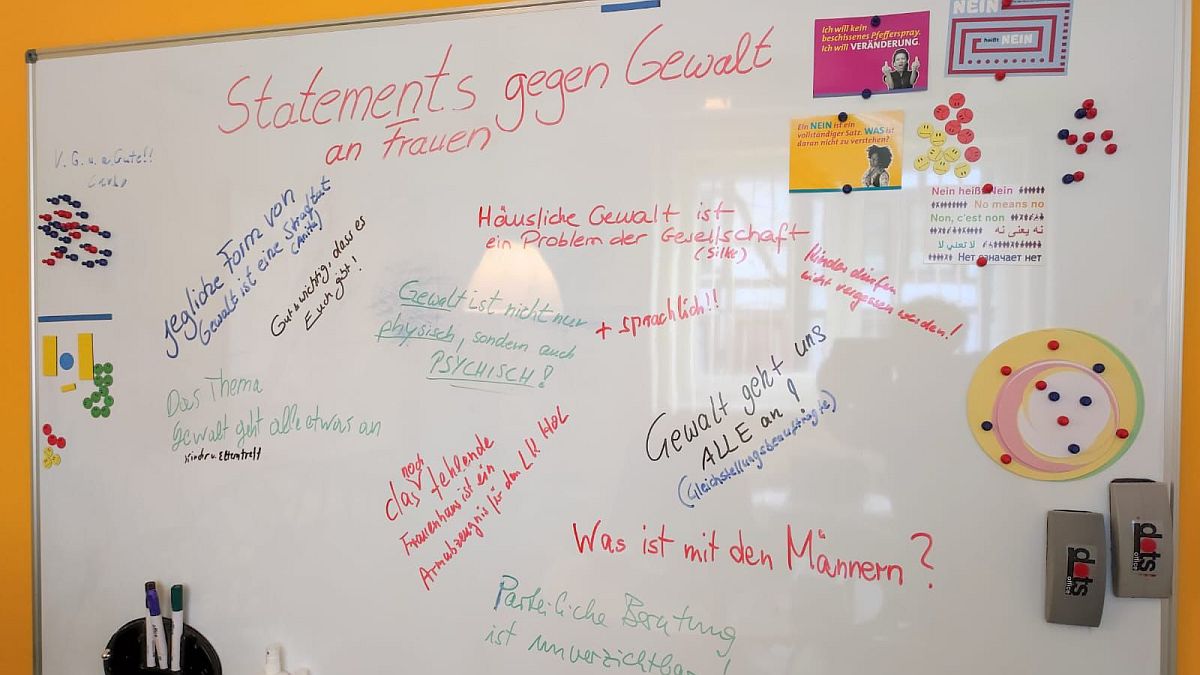 Statements gegen Gewalt
an Frauen
V. G. u. a. Gute!!
Ich will kein
beschissenes Pfefferspray.
Ich will VERÄNDERUNG.
NEIN
heißt NEIN
Ein NEIN ist ein
vollständiger Satz. WAS ist
daran nicht zu verstehen?
Nein heißt Nein
No means no
Non, c'est non
نه یعنی نه
لا تعني لا
Нет означает нет
jegliche Form von
Gewalt ist eine Straftat
(Anita)
Gut + wichtig, dass es
Euch gibt!
Häusliche Gewalt ist
ein Problem der Gesellschaft
(Silke)
Kinder dürfen
nicht vergessen werden!
Gewalt ist nicht nur
physisch, sondern auch
PSYCHISCH!
+ sprachlich!!
Das Thema
Gewalt geht alle etwas an
Kinder u. Elterntreff
Gewalt geht uns
ALLE an!
(Gleichstellungsbeauftragte)
noch
das fehlende
Frauenhaus ist ein
Armutszeugnis für den LK HOL
Was ist mit den Männern?
Parteiliche Beratung
ist unverzichtbar!
dots
office
dots
office